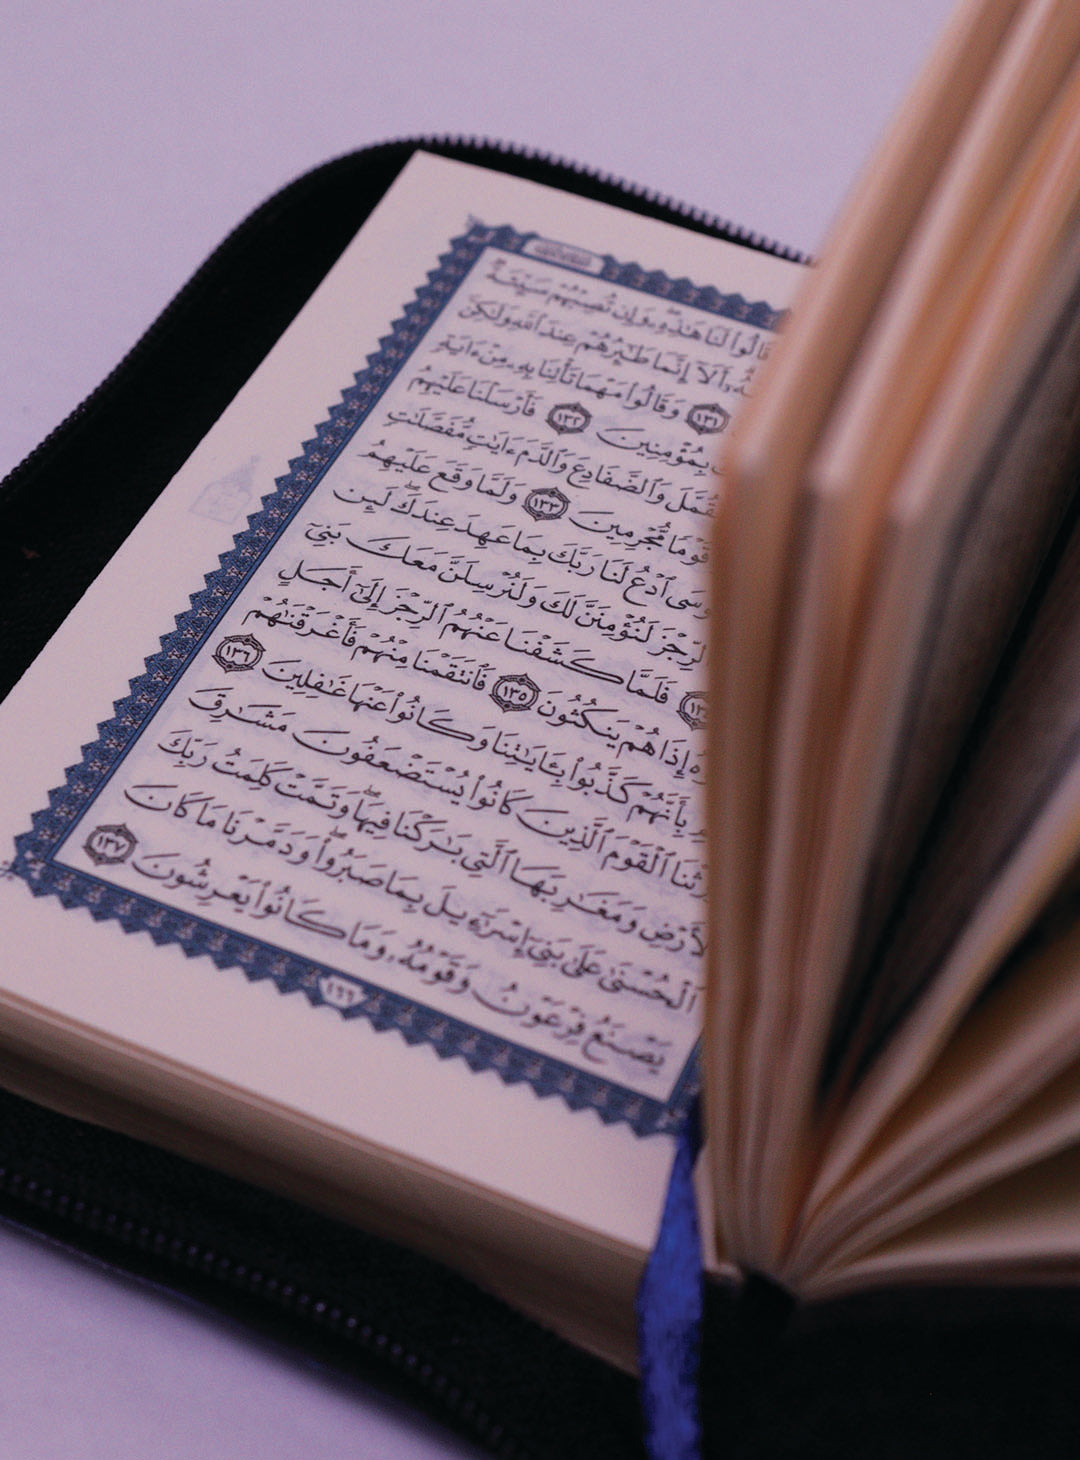 قَالُوا۟ لَنَا هَٰذِهِۦ ۖ وَإِن تُصِبْهُمْ سَيِّئَةٌ
أَلَآ إِنَّمَا طَٰٓئِرُهُمْ عِندَ ٱللَّهِ وَلَٰكِنَّ
١٣١ وَقَالُوا۟ مَهْمَا تَأْتِنَا بِهِۦ مِنْ ءَايَةٍ
بِمُؤْمِنِينَ ١٣٢ فَأَرْسَلْنَا عَلَيْهِمُ
وَٱلضَّفَادِعَ وَٱلدَّمَ ءَايَٰتٍ مُّفَصَّلَٰتٍ
قَوْمًا مُّجْرِمِينَ ١٣٣ وَلَمَّا وَقَعَ عَلَيْهِمُ
ٱدْعُ لَنَا رَبَّكَ بِمَا عَهِدَ عِندَكَ ۖ لَئِن
ٱلرِّجْزَ لَنُؤْمِنَنَّ لَكَ وَلَنُرْسِلَنَّ مَعَكَ بَنِىٓ
فَلَمَّا كَشَفْنَا عَنْهُمُ ٱلرِّجْزَ إِلَىٰٓ أَجَلٍ
إِذَا هُمْ يَنكُثُونَ ١٣٥ فَٱنتَقَمْنَا مِنْهُمْ فَأَغْرَقْنَٰهُمْ
بِأَنَّهُمْ كَذَّبُوا۟ بِـَٔايَٰتِنَا وَكَانُوا۟ عَنْهَا غَٰفِلِينَ ١٣٦
ٱلْقَوْمَ ٱلَّذِينَ كَانُوا۟ يُسْتَضْعَفُونَ مَشَٰرِقَ
ٱلْأَرْضِ وَمَغَٰرِبَهَا ٱلَّتِى بَٰرَكْنَا فِيهَا ۖ وَتَمَّتْ كَلِمَتُ رَبِّكَ
ٱلْحُسْنَىٰ عَلَىٰ بَنِىٓ إِسْرَٰٓءِيلَ بِمَا صَبَرُوا۟ ۖ وَدَمَّرْنَا مَا كَانَ
يَصْنَعُ فِرْعَوْنُ وَقَوْمُهُۥ وَمَا كَانُوا۟ يَعْرِشُونَ ١٣٧
١٦٦